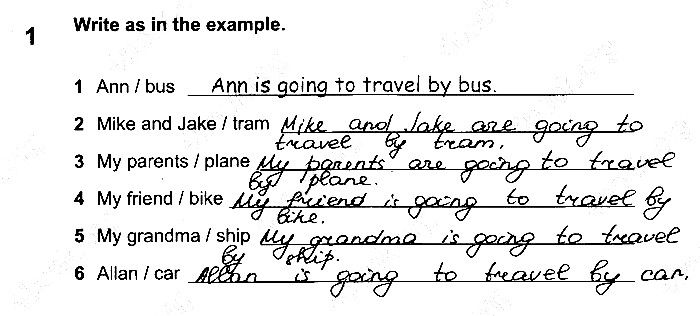 Write as in the example.
1
1 Ann / bus Ann is going to travel by bus.
2 Mike and Jake / tram Mike and Jake are going to
travel by tram.
3 My parents / plane My parents are going to travel
by plane.
4 My friend / bike My friend is going to travel by
bike.
5 My grandma / ship My grandma is going to travel
by ship.
6 Allan / car Allan is going to travel by car.